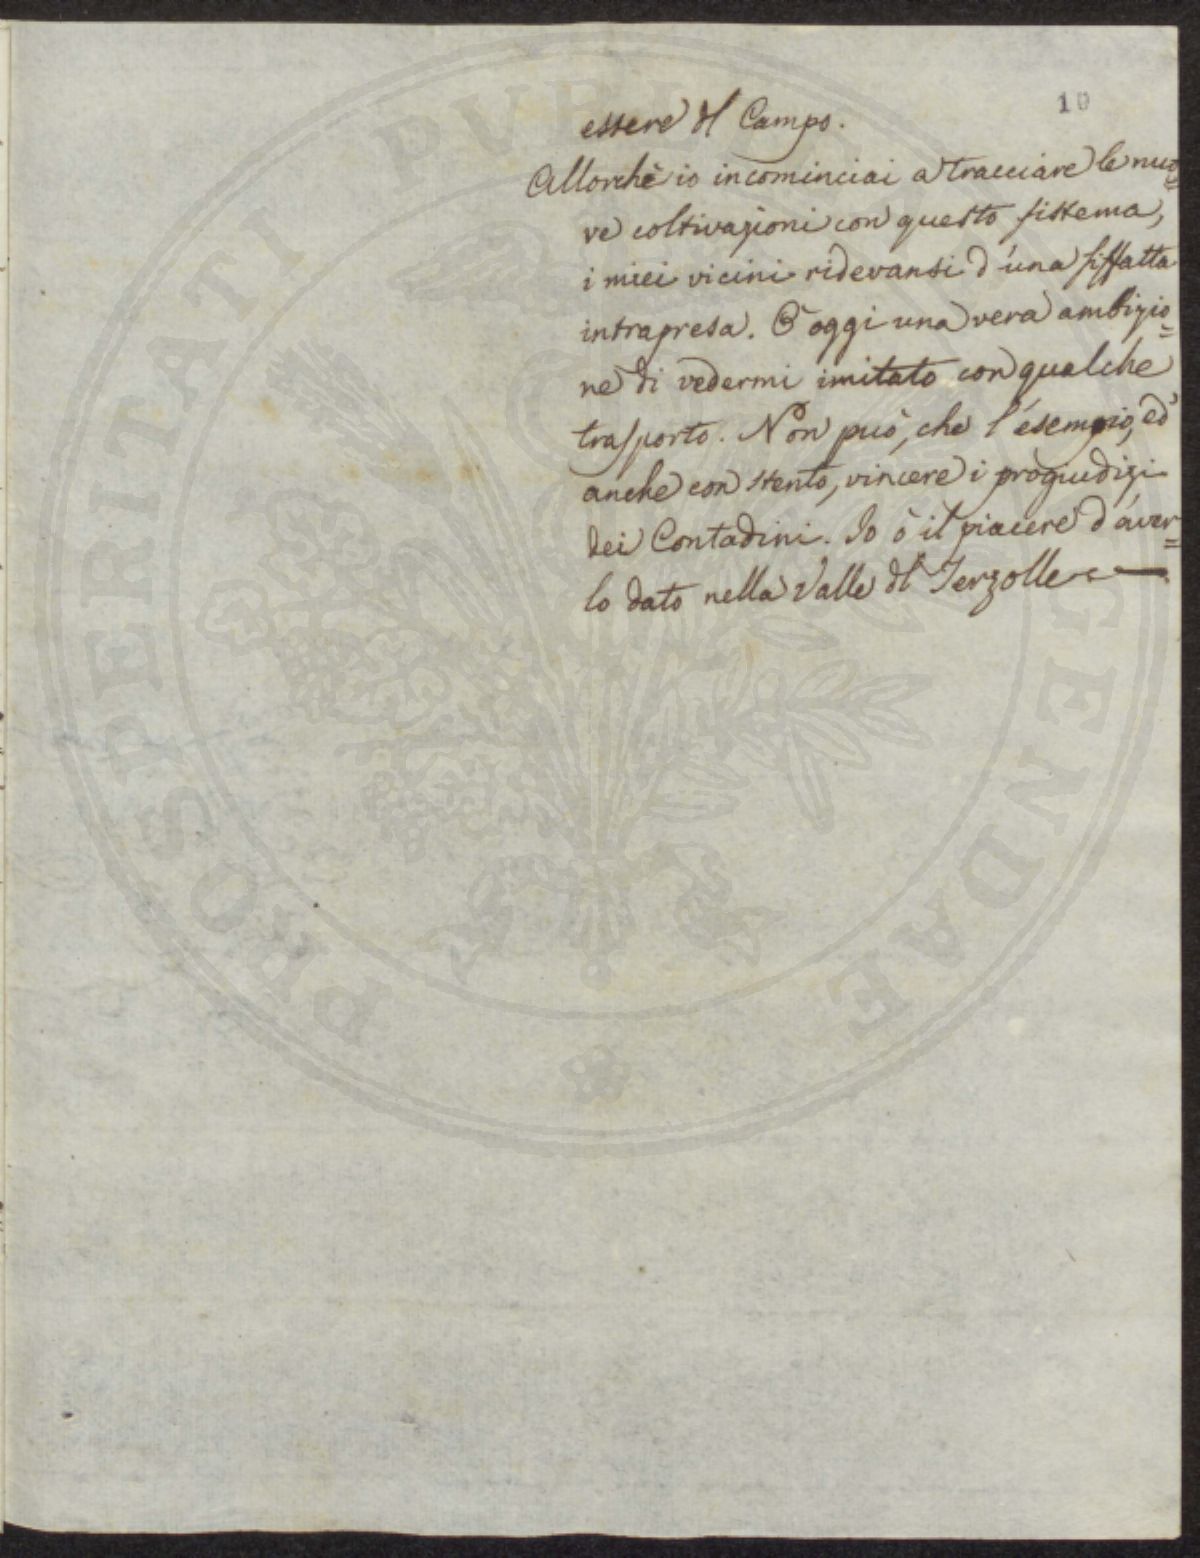 10
essere dl Campo.
Allorchè io incominciai a tracciare le nuo=
ve coltivazioni con questo sistema,
i miei vicini ridevansi d'una siffatta
intrapresa. È oggi una vera ambizio=
ne di vedermi imitato con qualche
trasporto. Non può, che l'esempio, ed
anche con stento, vincere i progiudizi
dei Contadini. Io ò il piacere d'aver=
lo dato nella Valle dl Terzolle
PROSPERITATI PUBLICAE AUGENDAE